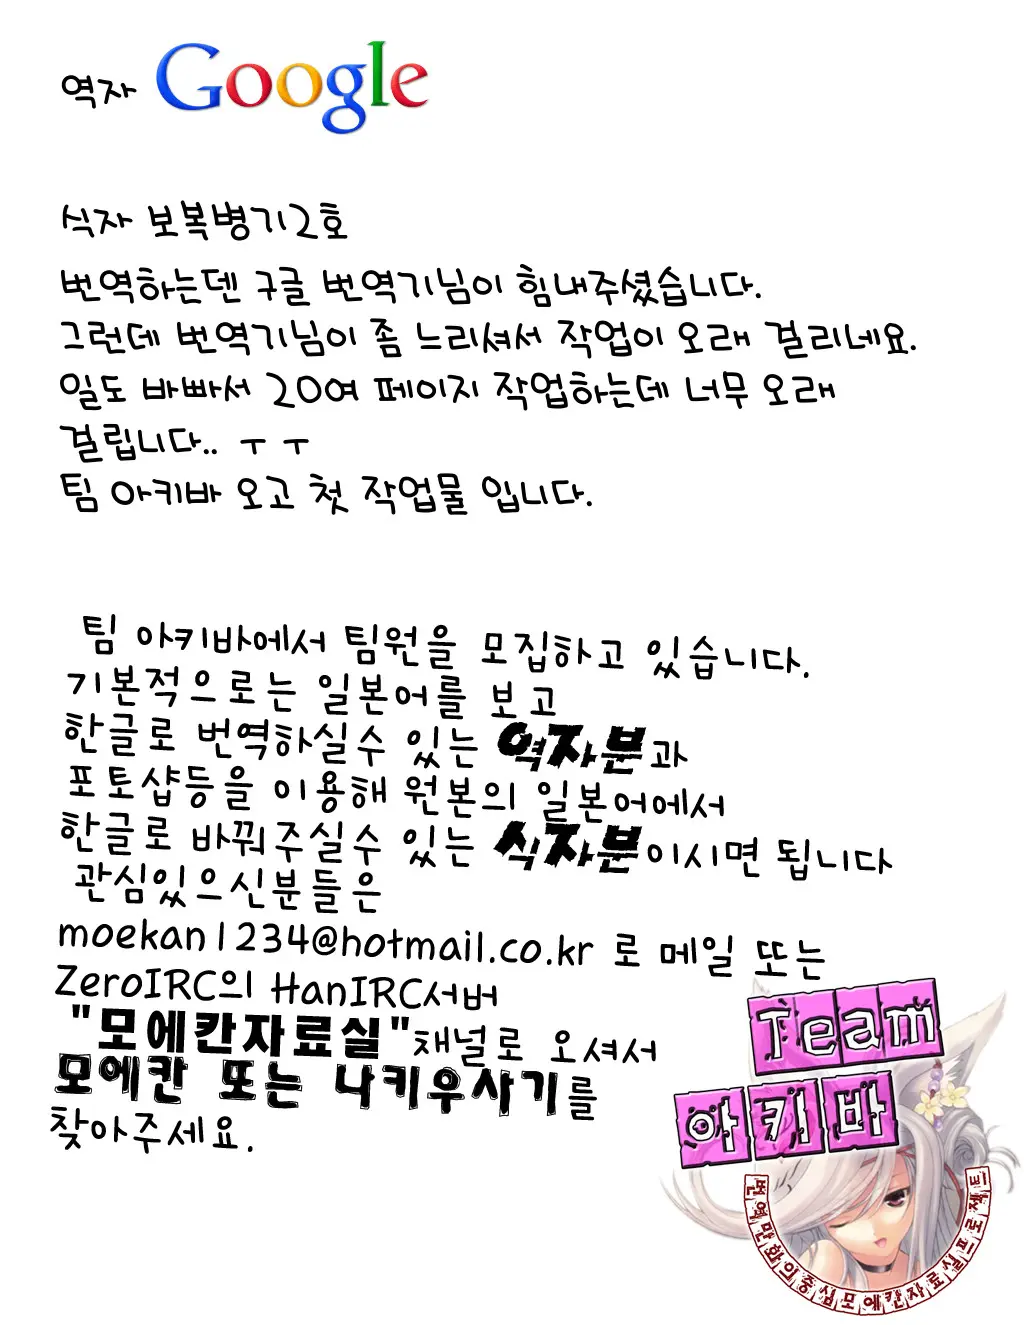 역자 Google
식자 보복병기2호
번역하는덴 구글 번역기님이 힘내주셨습니다.
그런데 번역기님이 좀 느리셔서 작업이 오래 걸리네요.
일도 바빠서 20여 페이지 작업하는데 너무 오래
걸립니다.. ㅜㅜ
팀 아키바 오고 첫 작업물 입니다.
팀 아키바에서 팀원을 모집하고 있습니다.
기본적으로는 일본어를 보고
한글로 번역하실수 있는 역자분과
포토샵등을 이용해 원본의 일본어에서
한글로 바꿔주실수 있는 식자분이시면 됩니다
관심있으신분들은
moekan1234@hotmail.co.kr 로 메일 또는
ZeroIRC의 HanIRC서버
"모에칸자료실"채널로 오셔서
모에칸 또는 나키우사기를
찾아주세요.
Team
아키바
번역만화의중심모에칸자료실프로젝트